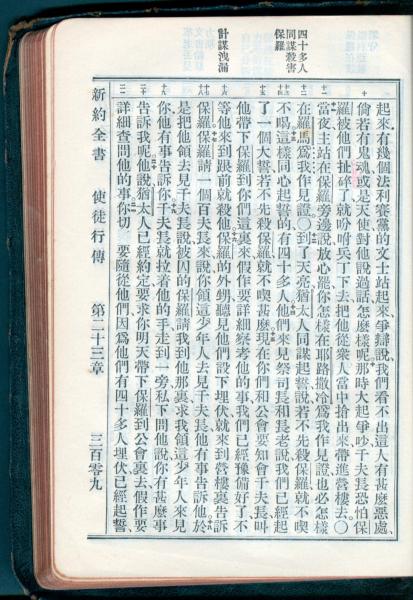 四十多人
同謀殺害
保羅
計謀洩漏
起來有幾個法利賽黨的文士站起來爭辯說、我們看不出這人有甚麼惡處、
倘若有鬼魂或是天使對他說過話怎麼樣呢。那時大起爭吵、千夫長恐怕保
羅被他們扯碎了、就吩咐兵丁下去把他從衆人當中搶出來、帶進營樓去。〇
當夜主站在保羅旁邊說、放心罷、你怎樣在耶路撒冷爲我作見證、也必怎樣
在羅馬爲我作見證。〇到了天亮、猶太人同謀起誓說、若不先殺保羅、就不喫
不喝。這樣同心起誓的有四十多人。他們來見祭司長和長老說、我們已經起
了一個大誓、若不先殺保羅、就不喫甚麼。現在你們和公會要知會千夫長、叫
他帶下保羅到你們這裏來、假作要詳細察考他的事、我們已經豫備好了、不
等他來到跟前就殺他。保羅的外甥聽見他們設下埋伏、就來到營樓裏告訴
保羅。保羅請一個百夫長來說、你領這少年人去見千夫長、他有事告訴他。於
是把他領去見千夫長、說、被囚的保羅請我到他那裏、求我領這少年人來見
你、他有事告訴你。千夫長就拉着他的手走到一旁、私下問他說、你有甚麼事
告訴我呢。他說、猶太人已經約定、要求你明天帶下保羅到公會裏去、假作要
詳細查問他的事。你切 要隨從他們、因爲他們有四十多人埋伏、已經起誓、
新約全書 使徒行傳 第二十三章 三百零九